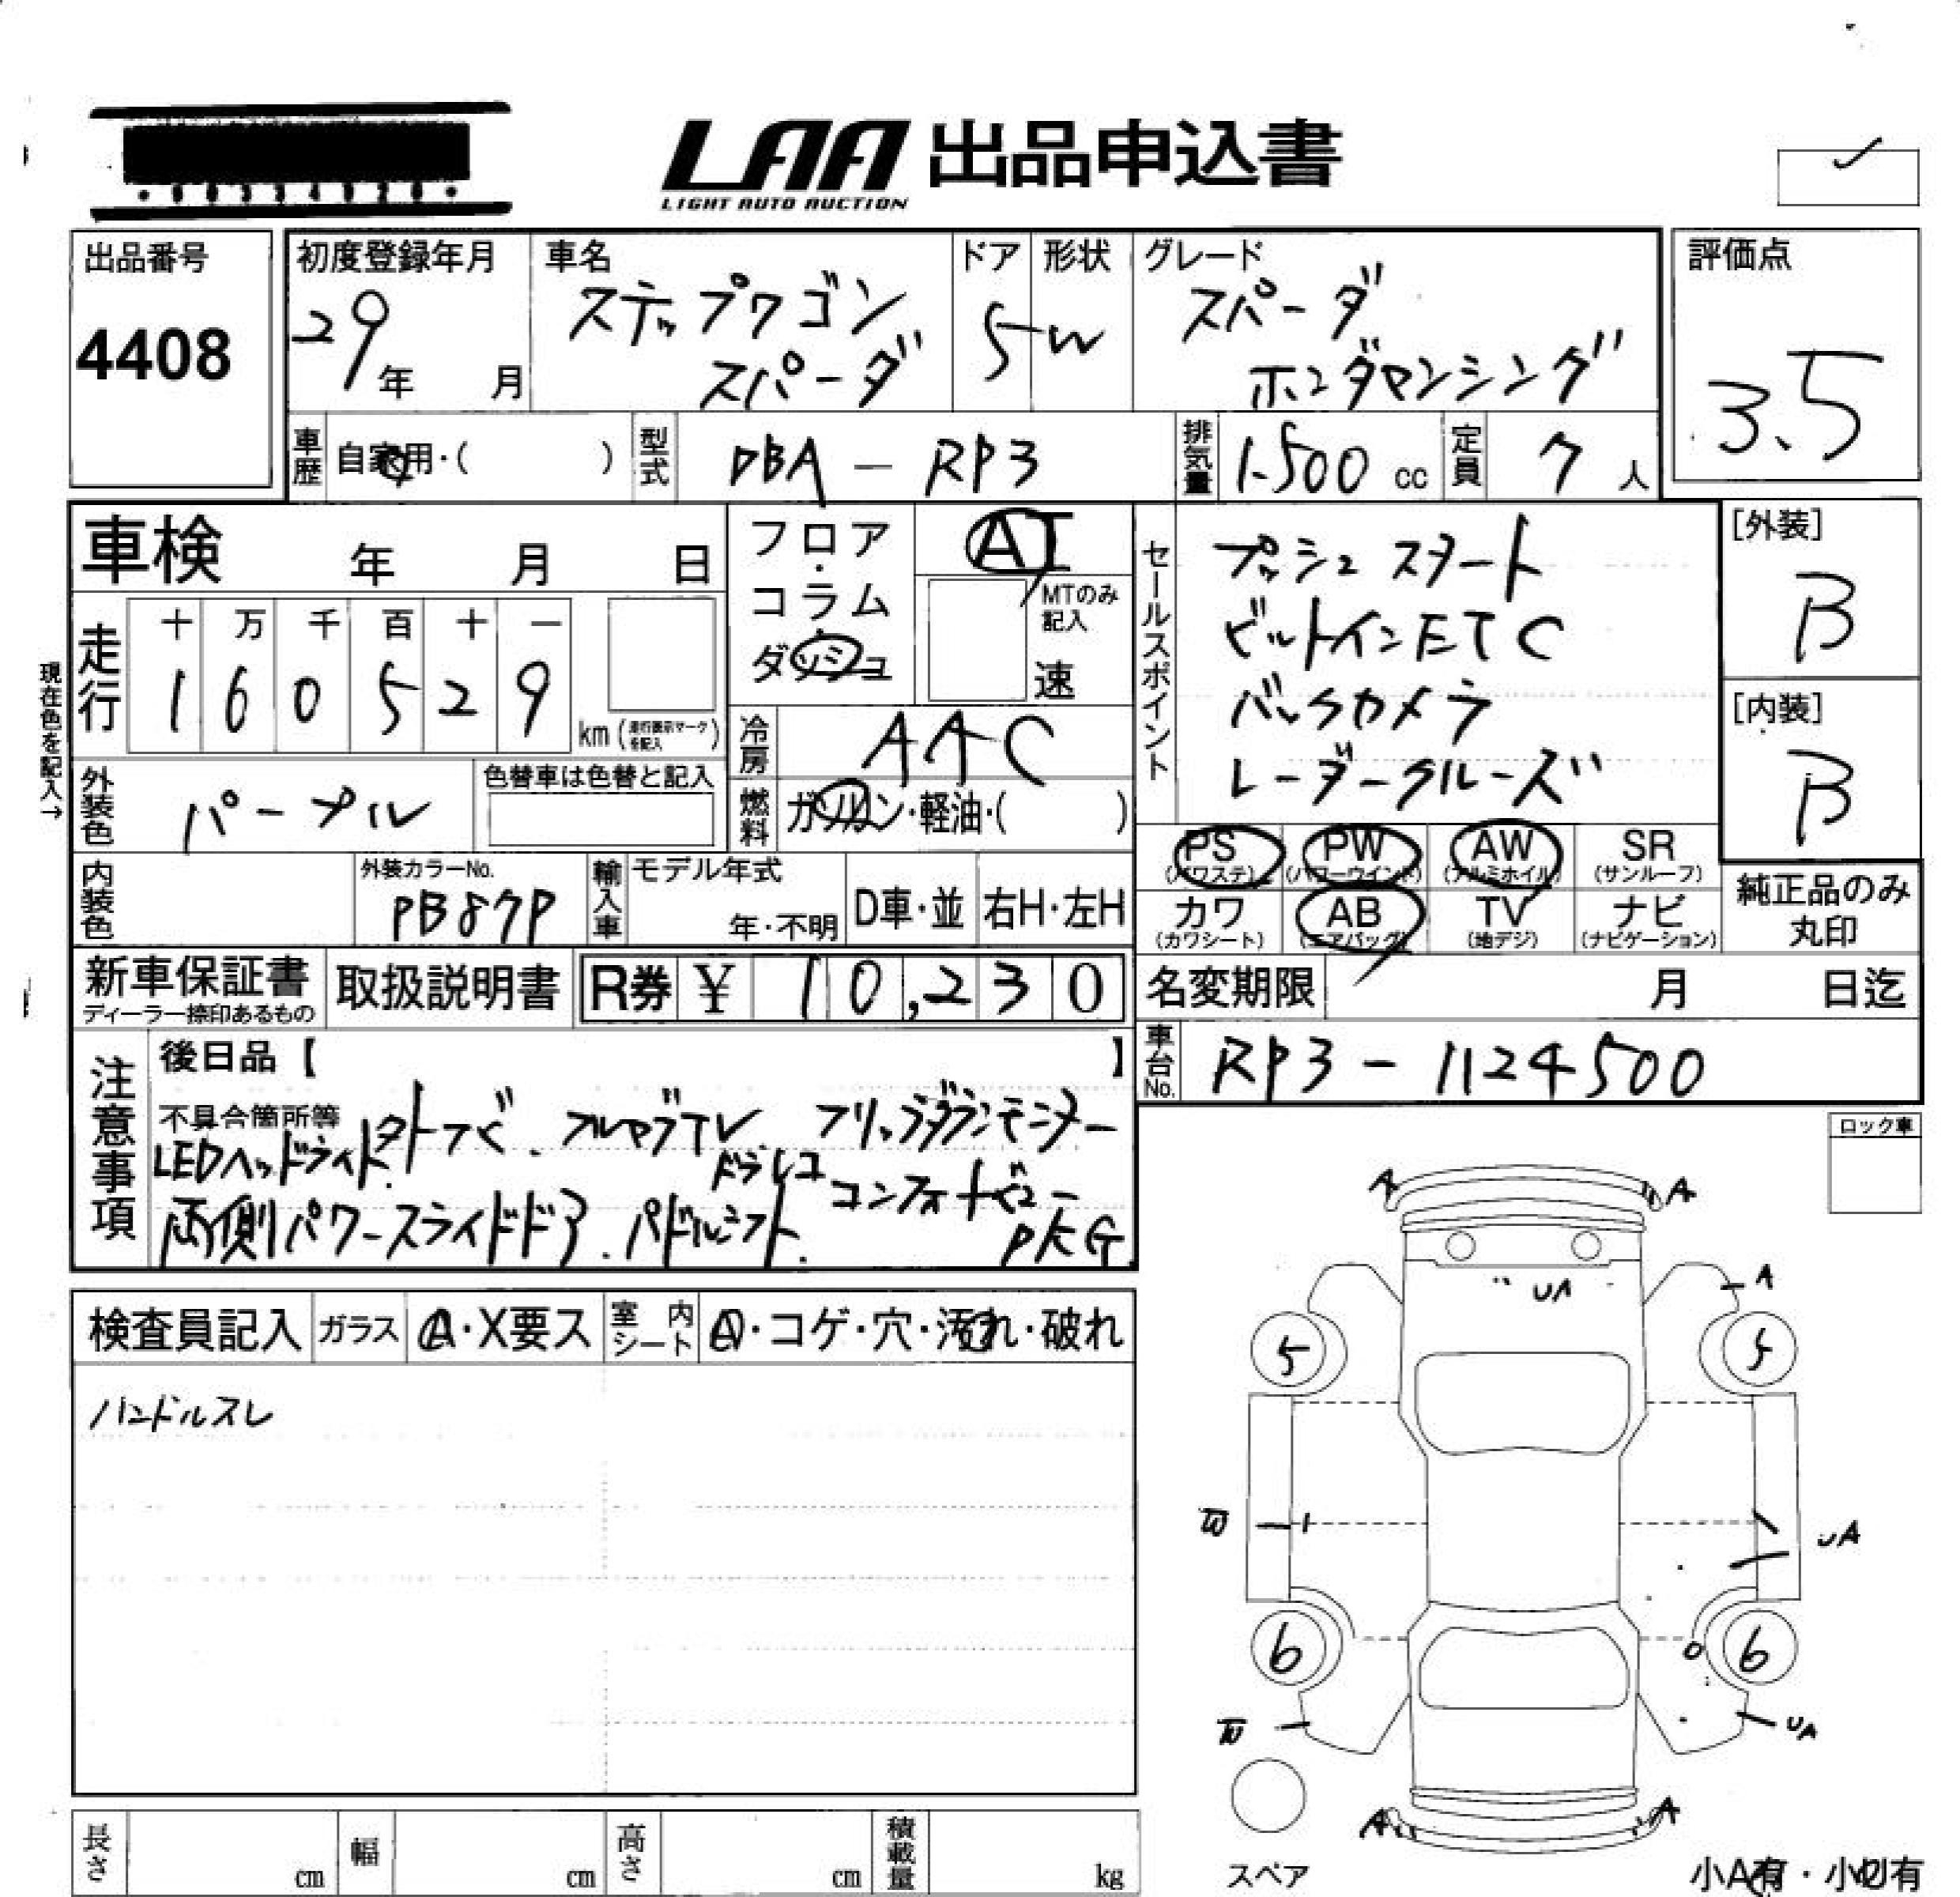 LAA 出品申込書
LIGHT AUTO AUCTION
出品番号
4408
初度登録年月
29年 月
車名
ステップワゴン
スパーダ
ドア
5
形状
W
グレード
スパーダ
ホンダセンシング
評価点
3.5
車歴
自家用・( )
型式
DBA - RP3
排気量
1.500 cc
定員
7 人
車検 年 月 日
フロア・コラム・ダッシュ
AT
MTのみ記入
速
走行
十 万 千 百 十 一
1 6 0 5 2 9
km (走行表示マークを記入)
現在色を記入→
冷房
AAC
外装色
パープル
色替車は色替と記入
燃料
ガソリン・軽油・( )
内装色
外装カラーNo.
PB87P
輸入車
モデル年式
年・不明
D車・並
右H・左H
セールスポイント
プッシュスタート
ビルトインETC
バックカメラ
レーダークルーズ
[外装]
B
[内装]
B
PS (パワステ)
PW (パワーウインド)
AW (アルミホイル)
SR (サンルーフ)
カワ (カワシート)
AB (エアバッグ)
TV (地デジ)
ナビ (ナビゲーション)
純正品のみ
丸印
新車保証書
ディーラー捺印あるもの
取扱説明書
R券 ¥ 10,230
名変期限 月 日迄
車台No.
RP3 - 1124500
注意事項
後日品【 】
不具合箇所等
LEDヘッドライト. 外ナビ. フルセグTV フリップダウンモニター
ドラレコ
両側パワースライドドア. パドルシフト. コンフォートビュー
PKG
ロック車
検査員記入
ガラス
A・X要ス
室内シート
A・コゲ・穴・汚れ・破れ
ハンドルスレ
A A
UA A
5 5
W UA
6 6
W UA
A A
スペア
小A有・小U有
長さ cm
幅 cm
高さ cm
積載量 kg